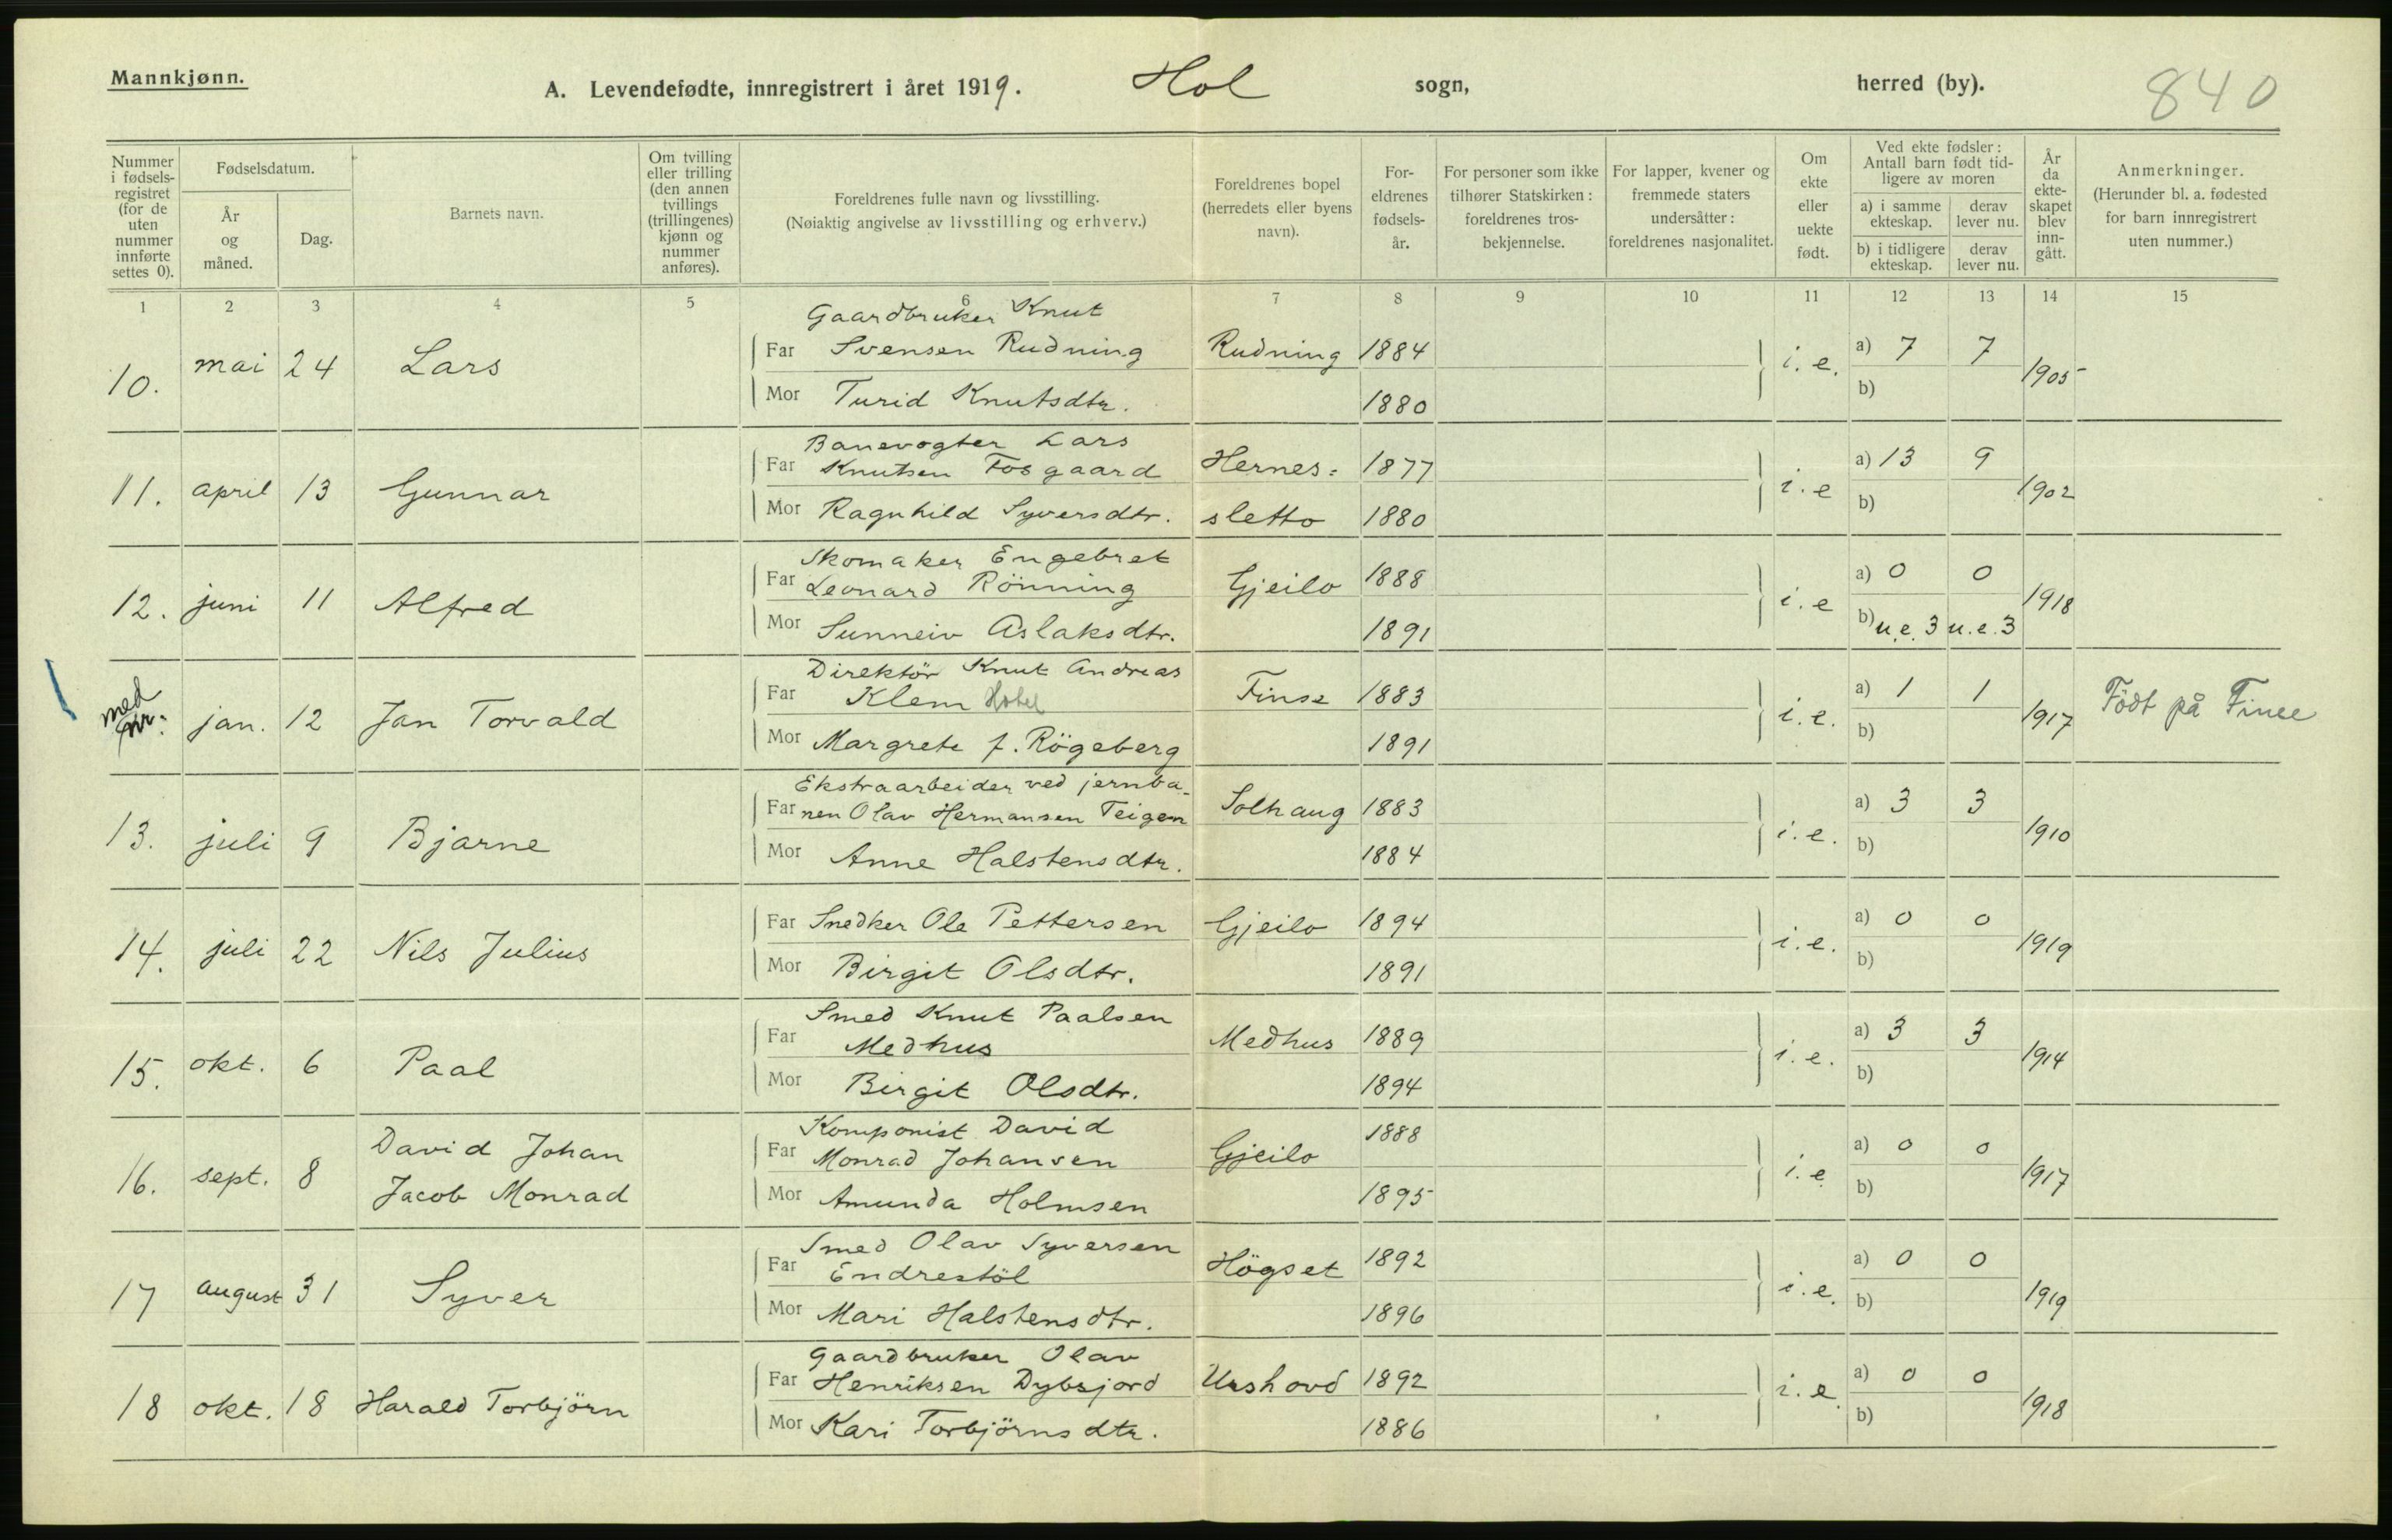 Mannkjønn.
A. Levendefødte, innregistrert i året 1919. Hol sogn, herred (by). 840
Nummer i fødsels-registret (for de uten nummer innførte settes 0).
Fødselsdatum.
År og måned.
Dag.
Barnets navn.
Om tvilling eller trilling (den annen tvillings (trillingenes) kjønn og nummer anføres).
Foreldrenes fulle navn og livsstilling.
(Nøiaktig angivelse av livsstilling og erhverv.)
Foreldrenes bopel (herredets eller byens navn).
For-eldrenes fødsels-år.
For personer som ikke tilhører Statskirken: foreldrenes tros-bekjennelse.
For lapper, kvener og fremmede staters undersåtter: foreldrenes nasjonalitet.
Om ekte eller uekte født.
Ved ekte fødsler: Antall barn født tid-ligere av moren
a) i samme ekteskap. derav lever nu.
b) i tidligere ekteskap. derav lever nu.
År da ekte-skapet blev inn-gått.
Anmerkninger.
(Herunder bl. a. fødested for barn innregistrert uten nummer.)
1 2 3 4 5 6 7 8 9 10 11 12 13 14 15
Gaardbruker Knut
10. mai 24 Lars Far Svensen Rudning Rudning 1884 i. e. a) 7 7 1905
Mor Turid Knutsdtr. 1880 b)
Banevogter Lars
11. april 13 Gunnar Far Knutsen Fosgaard Hernes= 1877 i. e a) 13 9 1902
Mor Ragnhild Syversdtr. sletto 1880 b)
Skomaker Engebret
12. juni 11 Alfred Far Leonard Rönning Gjeilo 1888 i. e a) 0 0 1918
Mor Sunneiv Aslaksdtr. 1891 b) u.e. 3 u.e. 3
Direktör Knut Andreas
med nr. jan. 12 Jan Torvald Far Klem Hotel Finse 1883 i. e. a) 1 1 1917 Födt på Finse
Mor Margrete f. Rögeberg 1891 b)
Ekstraarbeider ved jernba-
13. juli 9 Bjarne Far nen Olav Hermansen Teigen Solhaug 1883 i. e. a) 3 3 1910
Mor Anne Halstensdtr. 1884 b)
14. juli 22 Nils Julius Far Snedker Ole Pettersen Gjeilo 1894 i. e. a) 0 0 1919
Mor Birgit Olsdtr. 1891 b)
Smed Knut Paalsen
15. okt. 6 Paal Far Medhus Medhus 1889 i. e. a) 3 3 1914
Mor Birgit Olsdtr. 1894 b)
Komponist David
16. sept. 8 David Johan Jacob Monrad Far Monrad Johansen Gjeilo 1888 i. e a) 0 0 1917
Mor Amunda Holmsen 1895 b)
Smed Olav Syversen
17 august 31 Syver Far Endrestöl Högset 1892 i. e. a) 0 0 1919
Mor Mari Halstensdtr. 1896 b)
Gaardbruker Olav
18 okt. 18 Harald Torbjörn Far Henriksen Dybsjord Urshovd 1892 i. e. a) 0 0 1918
Mor Kari Torbjörnsdtr. 1886 b)